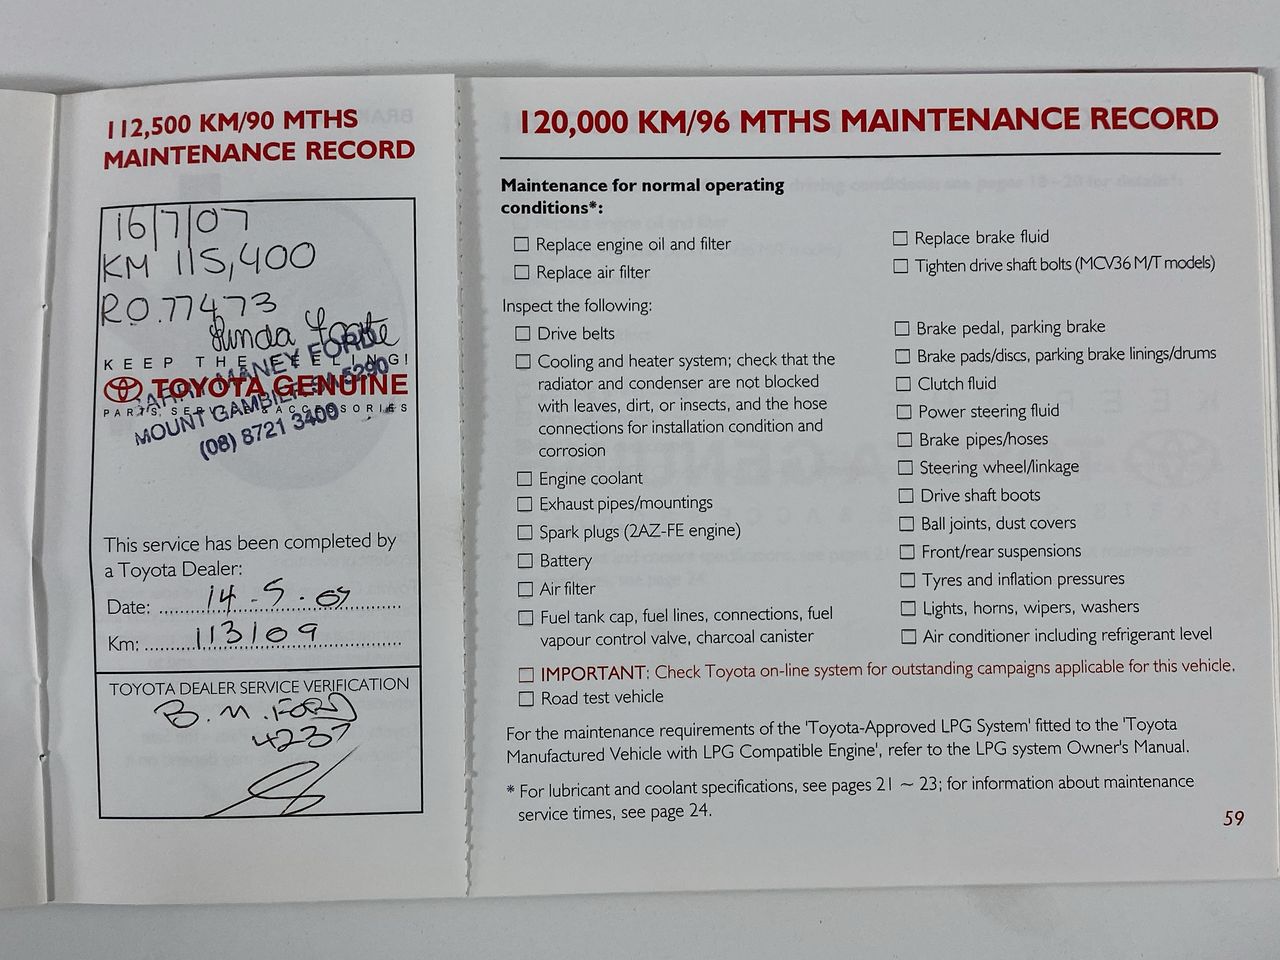 112,500 KM/90 MTHS
MAINTENANCE RECORD
16/7/07
KM 115,400
R.O. 77473
KEEP THE FEELING!
TOYOTA GENUINE
PARTS, SERVICE & ACCESSORIES
MANEY FORD
MOUNT GAMBIER SA 5290
(08) 8721 3400
This service has been completed by
a Toyota Dealer:
Date: 14.5.07
Km: 113109
TOYOTA DEALER SERVICE VERIFICATION
B.M. FORD
4237
120,000 KM/96 MTHS MAINTENANCE RECORD
Maintenance for normal operating
conditions*:
Replace engine oil and filter
Replace air filter
Replace brake fluid
Tighten drive shaft bolts (MCV36 M/T models)
Inspect the following:
Drive belts
Cooling and heater system; check that the
radiator and condenser are not blocked
with leaves, dirt, or insects, and the hose
connections for installation condition and
corrosion
Engine coolant
Exhaust pipes/mountings
Spark plugs (2AZ-FE engine)
Battery
Air filter
Fuel tank cap, fuel lines, connections, fuel
vapour control valve, charcoal canister
Brake pedal, parking brake
Brake pads/discs, parking brake linings/drums
Clutch fluid
Power steering fluid
Brake pipes/hoses
Steering wheel/linkage
Drive shaft boots
Ball joints, dust covers
Front/rear suspensions
Tyres and inflation pressures
Lights, horns, wipers, washers
Air conditioner including refrigerant level
IMPORTANT: Check Toyota on-line system for outstanding campaigns applicable for this vehicle.
Road test vehicle
For the maintenance requirements of the 'Toyota-Approved LPG System' fitted to the 'Toyota
Manufactured Vehicle with LPG Compatible Engine', refer to the LPG system Owner's Manual.
* For lubricant and coolant specifications, see pages 21 ~ 23; for information about maintenance
service times, see page 24.
59